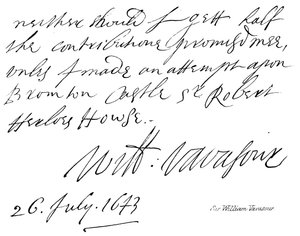 neither should I gett half
the contributions promisd mee,
unles I made an attempt upon
Bromton Castle Sr Robert
Herloes Howse.
Will: Vavasour
26. July. 1643
Sir William Vavasour